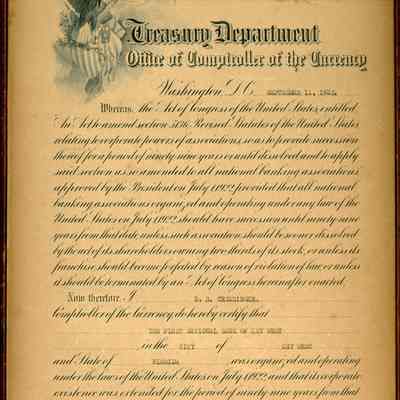 Treasury Department
Office of Comptroller of the Currency
Washington, D.C. SEPTEMBER 11, 1922.
Whereas, the Act of Congress of the United States, entitled
"An Act to amend section 5136, Revised Statutes of the United States
relating to corporate powers of associations, so as to provide succession
thereof for a period of ninety-nine years or until dissolved, and to apply
said section as so amended to all national banking associations"
approved by the President on July 1, 1922, provided that all national
banking associations organized and operating under any law of the
United States on July 1, 1922, should have succession until ninety-nine
years from that date, unless such association should be sooner dissolved
by the act of its shareholders owning two-thirds of its stock, or unless its
franchise should become forfeited by reason of violation of law, or unless
it should be terminated by an Act of Congress hereinafter enacted,
Now therefore, I D. R. CRISSINGER,
Comptroller of the Currency, do hereby certify that
THE FIRST NATIONAL BANK OF KEY WEST
in the CITY of KEY WEST
and State of FLORIDA was organized and operating
under the laws of the United States on July 1, 1922, and that its corporate
existence was extended for the period of ninety-nine years from that